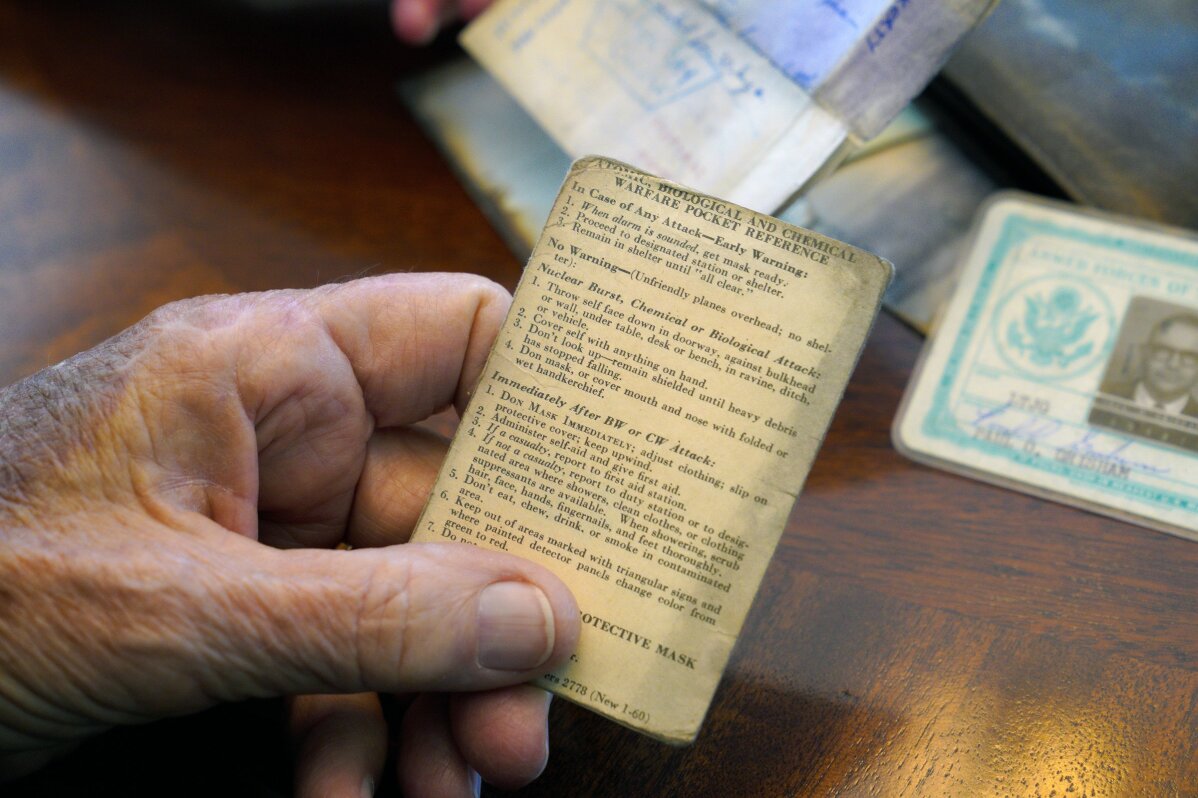 ATOMIC, BIOLOGICAL AND CHEMICAL
WARFARE POCKET REFERENCE
In Case of Any Attack—Early Warning:
1. When alarm is sounded, get mask ready.
2. Proceed to designated station or shelter.
3. Remain in shelter until "all clear."
No Warning—(Unfriendly planes overhead; no shel-
ter):
Nuclear Burst, Chemical or Biological Attack:
1. Throw self face down in doorway, against bulkhead
or wall, under table, desk or bench, in ravine, ditch,
or vehicle.
2. Cover self with anything on hand.
3. Don't look up—remain shielded until heavy debris
has stopped falling.
4. Don mask, or cover mouth and nose with folded or
wet handkerchief.
Immediately After BW or CW Attack:
1. DON MASK IMMEDIATELY; adjust clothing; slip on
protective cover; keep upwind.
2. Administer self-aid and give first aid.
3. If a casualty, report to first aid station.
4. If not a casualty, report to duty station or to desig-
nated area where showers, clean clothes, or clothing
suppressants are available. When showering, scrub
hair, face, hands, fingernails, and feet thoroughly.
5. Don't eat, chew, drink, or smoke in contaminated
area.
6. Keep out of areas marked with triangular signs and
where painted detector panels change color from
green to red.
7. Do
OTECTIVE MASK
2778 (New 1-60)